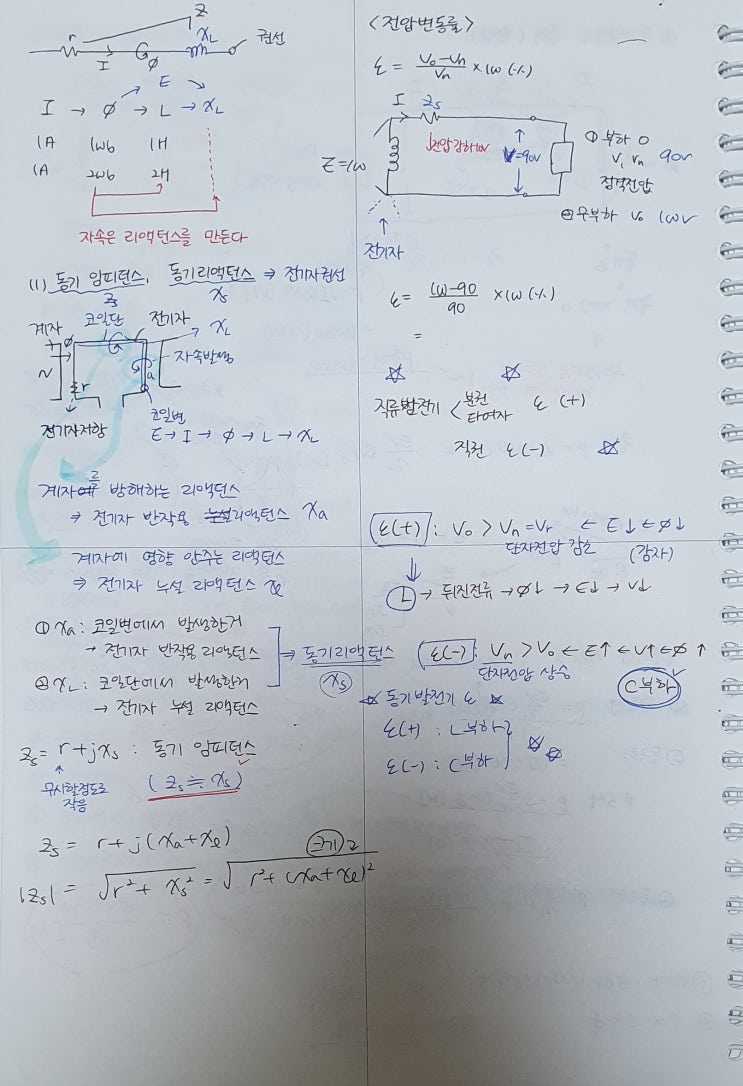 Z
r
I
G
φ
X_L
권선
E
I → φ → L → X_L
1A 1wb 1H
1A 2wb 2H
자속은 리액턴스를 만든다
(1) 동기 임피던스, 동기리액턴스 ⇒ 전기자권선
Z_s
X_s
계자 코일단 전기자
X_L
φ
N
자속발생
a
r
전기자저항
코일변
E → I → φ → L → X_L
계자를 방해하는 리액턴스
⇒ 전기자 반작용 리액턴스 X_a
계자에 영향 안주는 리액턴스
⇒ 전기자 누설 리액턴스 X_ℓ
① X_a : 코일변에서 발생한거
→ 전기자 반작용 리액턴스
② X_L : 코일단에서 발생한거
→ 전기자 누설 리액턴스
⇒ 동기리액턴스
X_s
Z_s = r + jX_s : 동기 임피던스
무시할정도로
작음
(Z_s ≒ X_s)
Z_s = r + j(X_a + X_ℓ)
크기
|Z_s| = √r² + X_s² = √r² + (X_a + X_ℓ)²
<전압변동률>
ε = V₀ - Vn / Vn × 100 (%)
I Z_s
E = 100
전압강하10V
V = 90V
전기자
① 부하 O
V, Vn 90V
정격전압
② 무부하 V₀ 100V
ε = 100 - 90 / 90 × 100 (%)
=
☆ ☆
직류발전기 < 분권
타여자 ε (+)
직권 ε (-) ☆
ε(+) : V₀ > Vn = Vr ← E↓ ← φ↓
단자전압 감소 (감자)
⇓
L → 뒤진전류 → φ↓ → E↓ → V↓
ε(-) : Vn > V₀ ← E↑ ← V↑ ← φ↑
단자전압 상승
C부하
☆ 동기발전기 ε ☆
ε(+) : L부하
ε(-) : C부하
☆ ☆